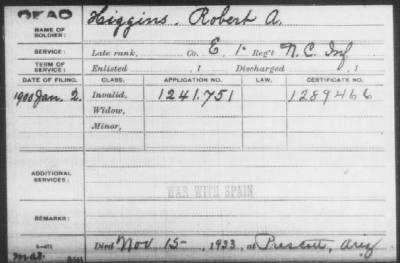 DEAD
NAME OF SOLDIER: Higgins, Robert A.
SERVICE: Late rank, Co. E, 1st Reg't N.C. Inf
TERM OF SERVICE: Enlisted , 1 Discharged , 1
DATE OF FILING. CLASS. APPLICATION NO. LAW. CERTIFICATE NO.
1900 Jan. 2. Invalid, 1241.751 1289466
Widow,
Minor,
ADDITIONAL SERVICES:
WAR WITH SPAIN
REMARKS:
Died Nov 15-, 1933, at Prescott, Ariz